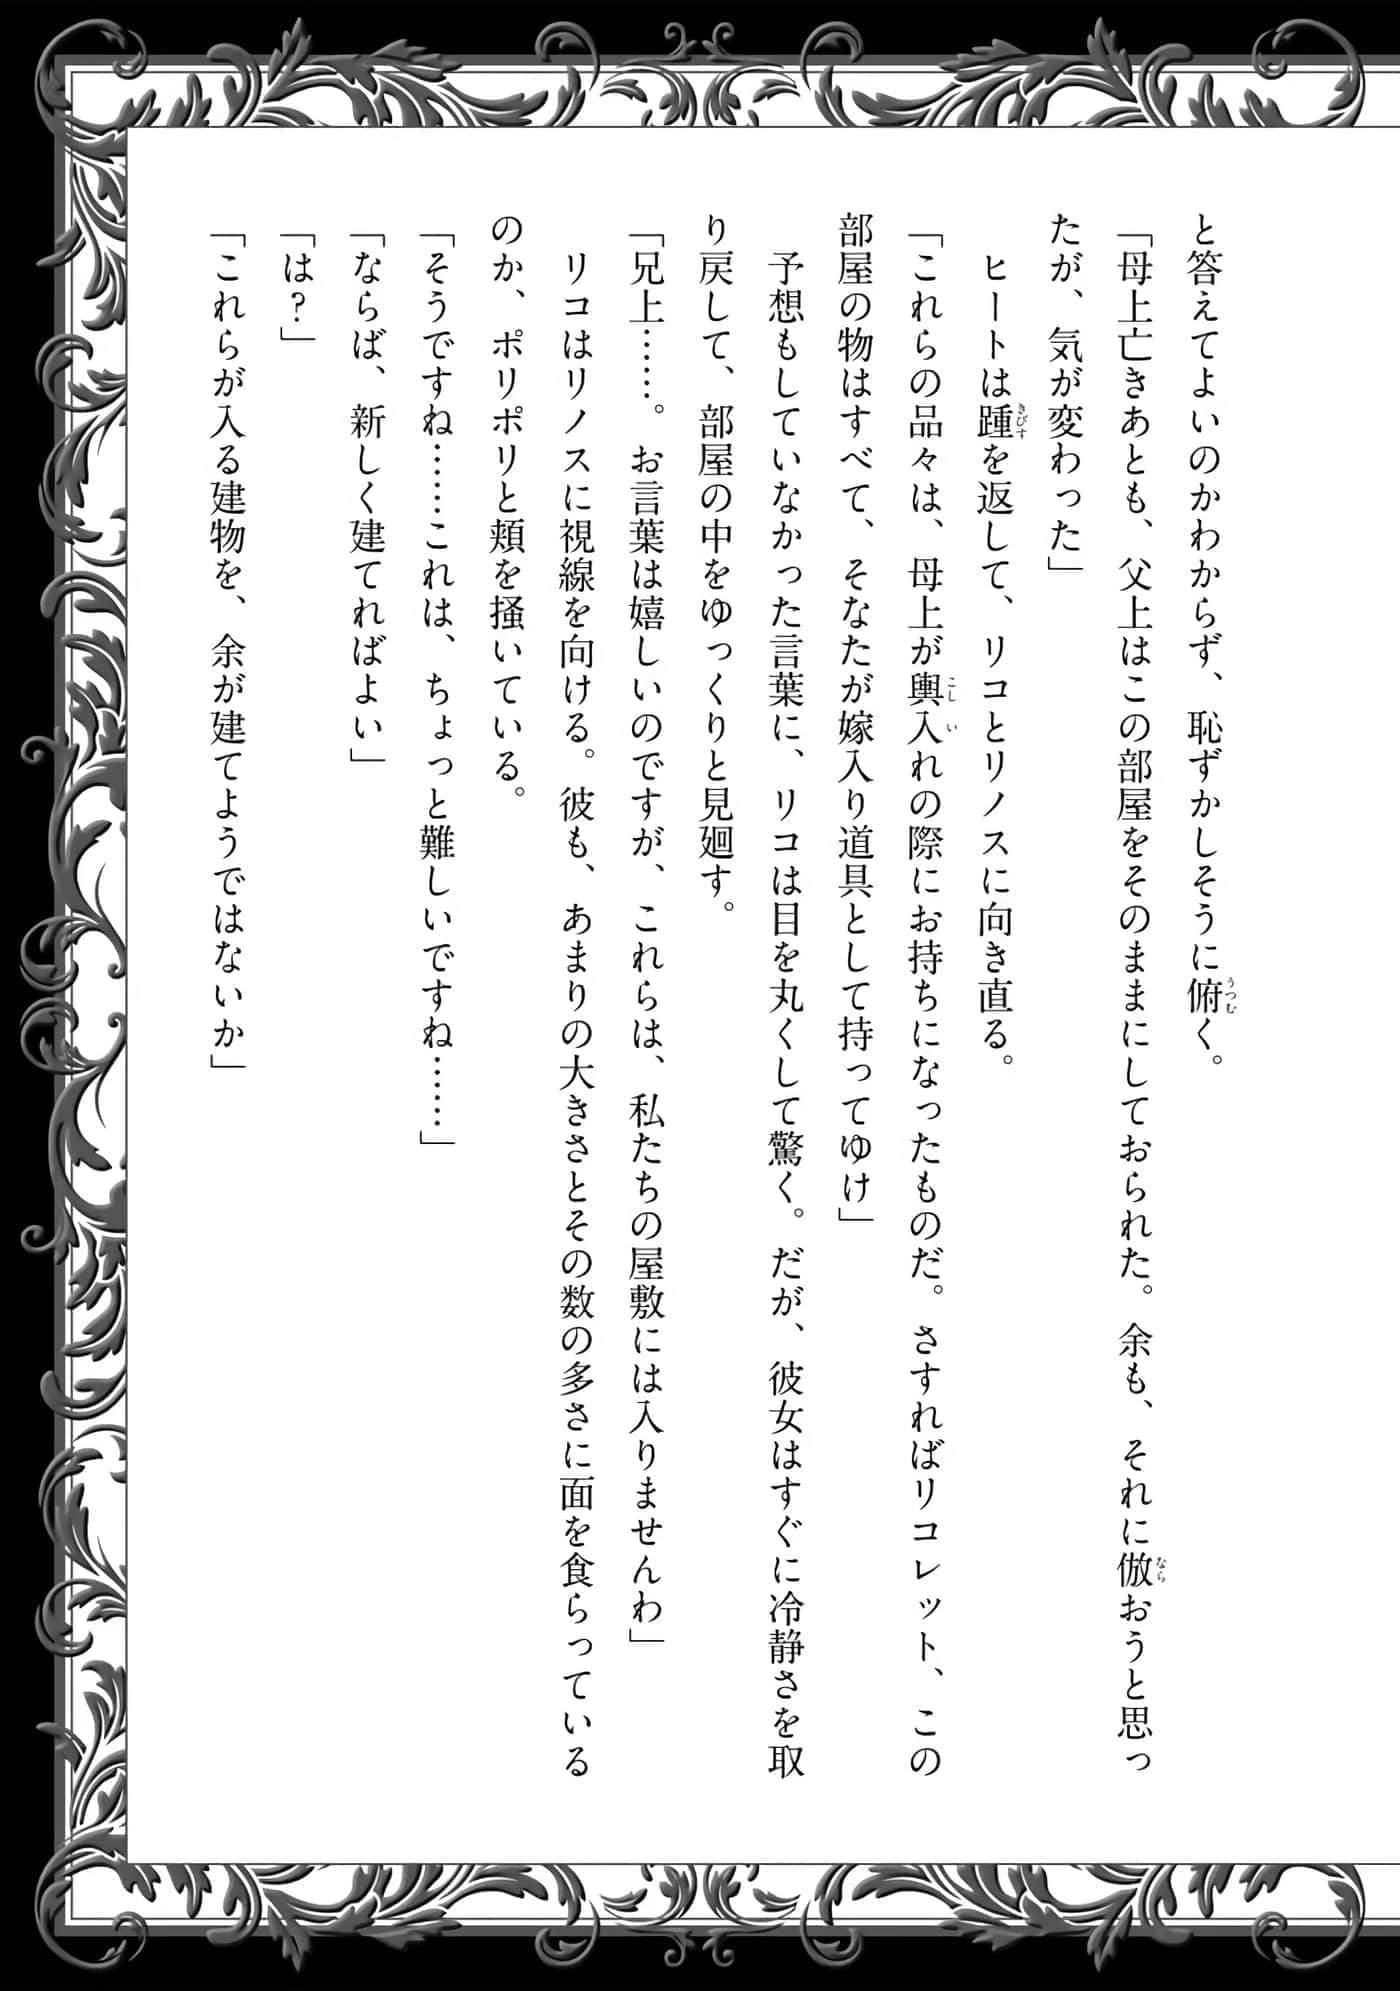 と答えてよいのかわからず、恥ずかしそうに俯く。
「母上亡きあとも、父上はこの部屋をそのままにしておられた。余も、それに倣おうと思っ
たが、気が変わった」
　ヒートは踵を返して、リコとリノスに向き直る。
「これらの品々は、母上が輿入れの際にお持ちになったものだ。さすればリコレット、この
部屋の物はすべて、そなたが嫁入り道具として持ってゆけ」
　予想もしていなかった言葉に、リコは目を丸くして驚く。だが、彼女はすぐに冷静さを取
り戻して、部屋の中をゆっくりと見廻す。
「兄上……。お言葉は嬉しいのですが、これらは、私たちの屋敷には入りませんわ」
　リコはリノスに視線を向ける。彼も、あまりの大きさとその数の多さに面を食らっている
のか、ポリポリと頬を掻いている。
「そうですね……これは、ちょっと難しいですね……」
「ならば、新しく建てればよい」
「は？」
「これらが入る建物を、余が建てようではないか」